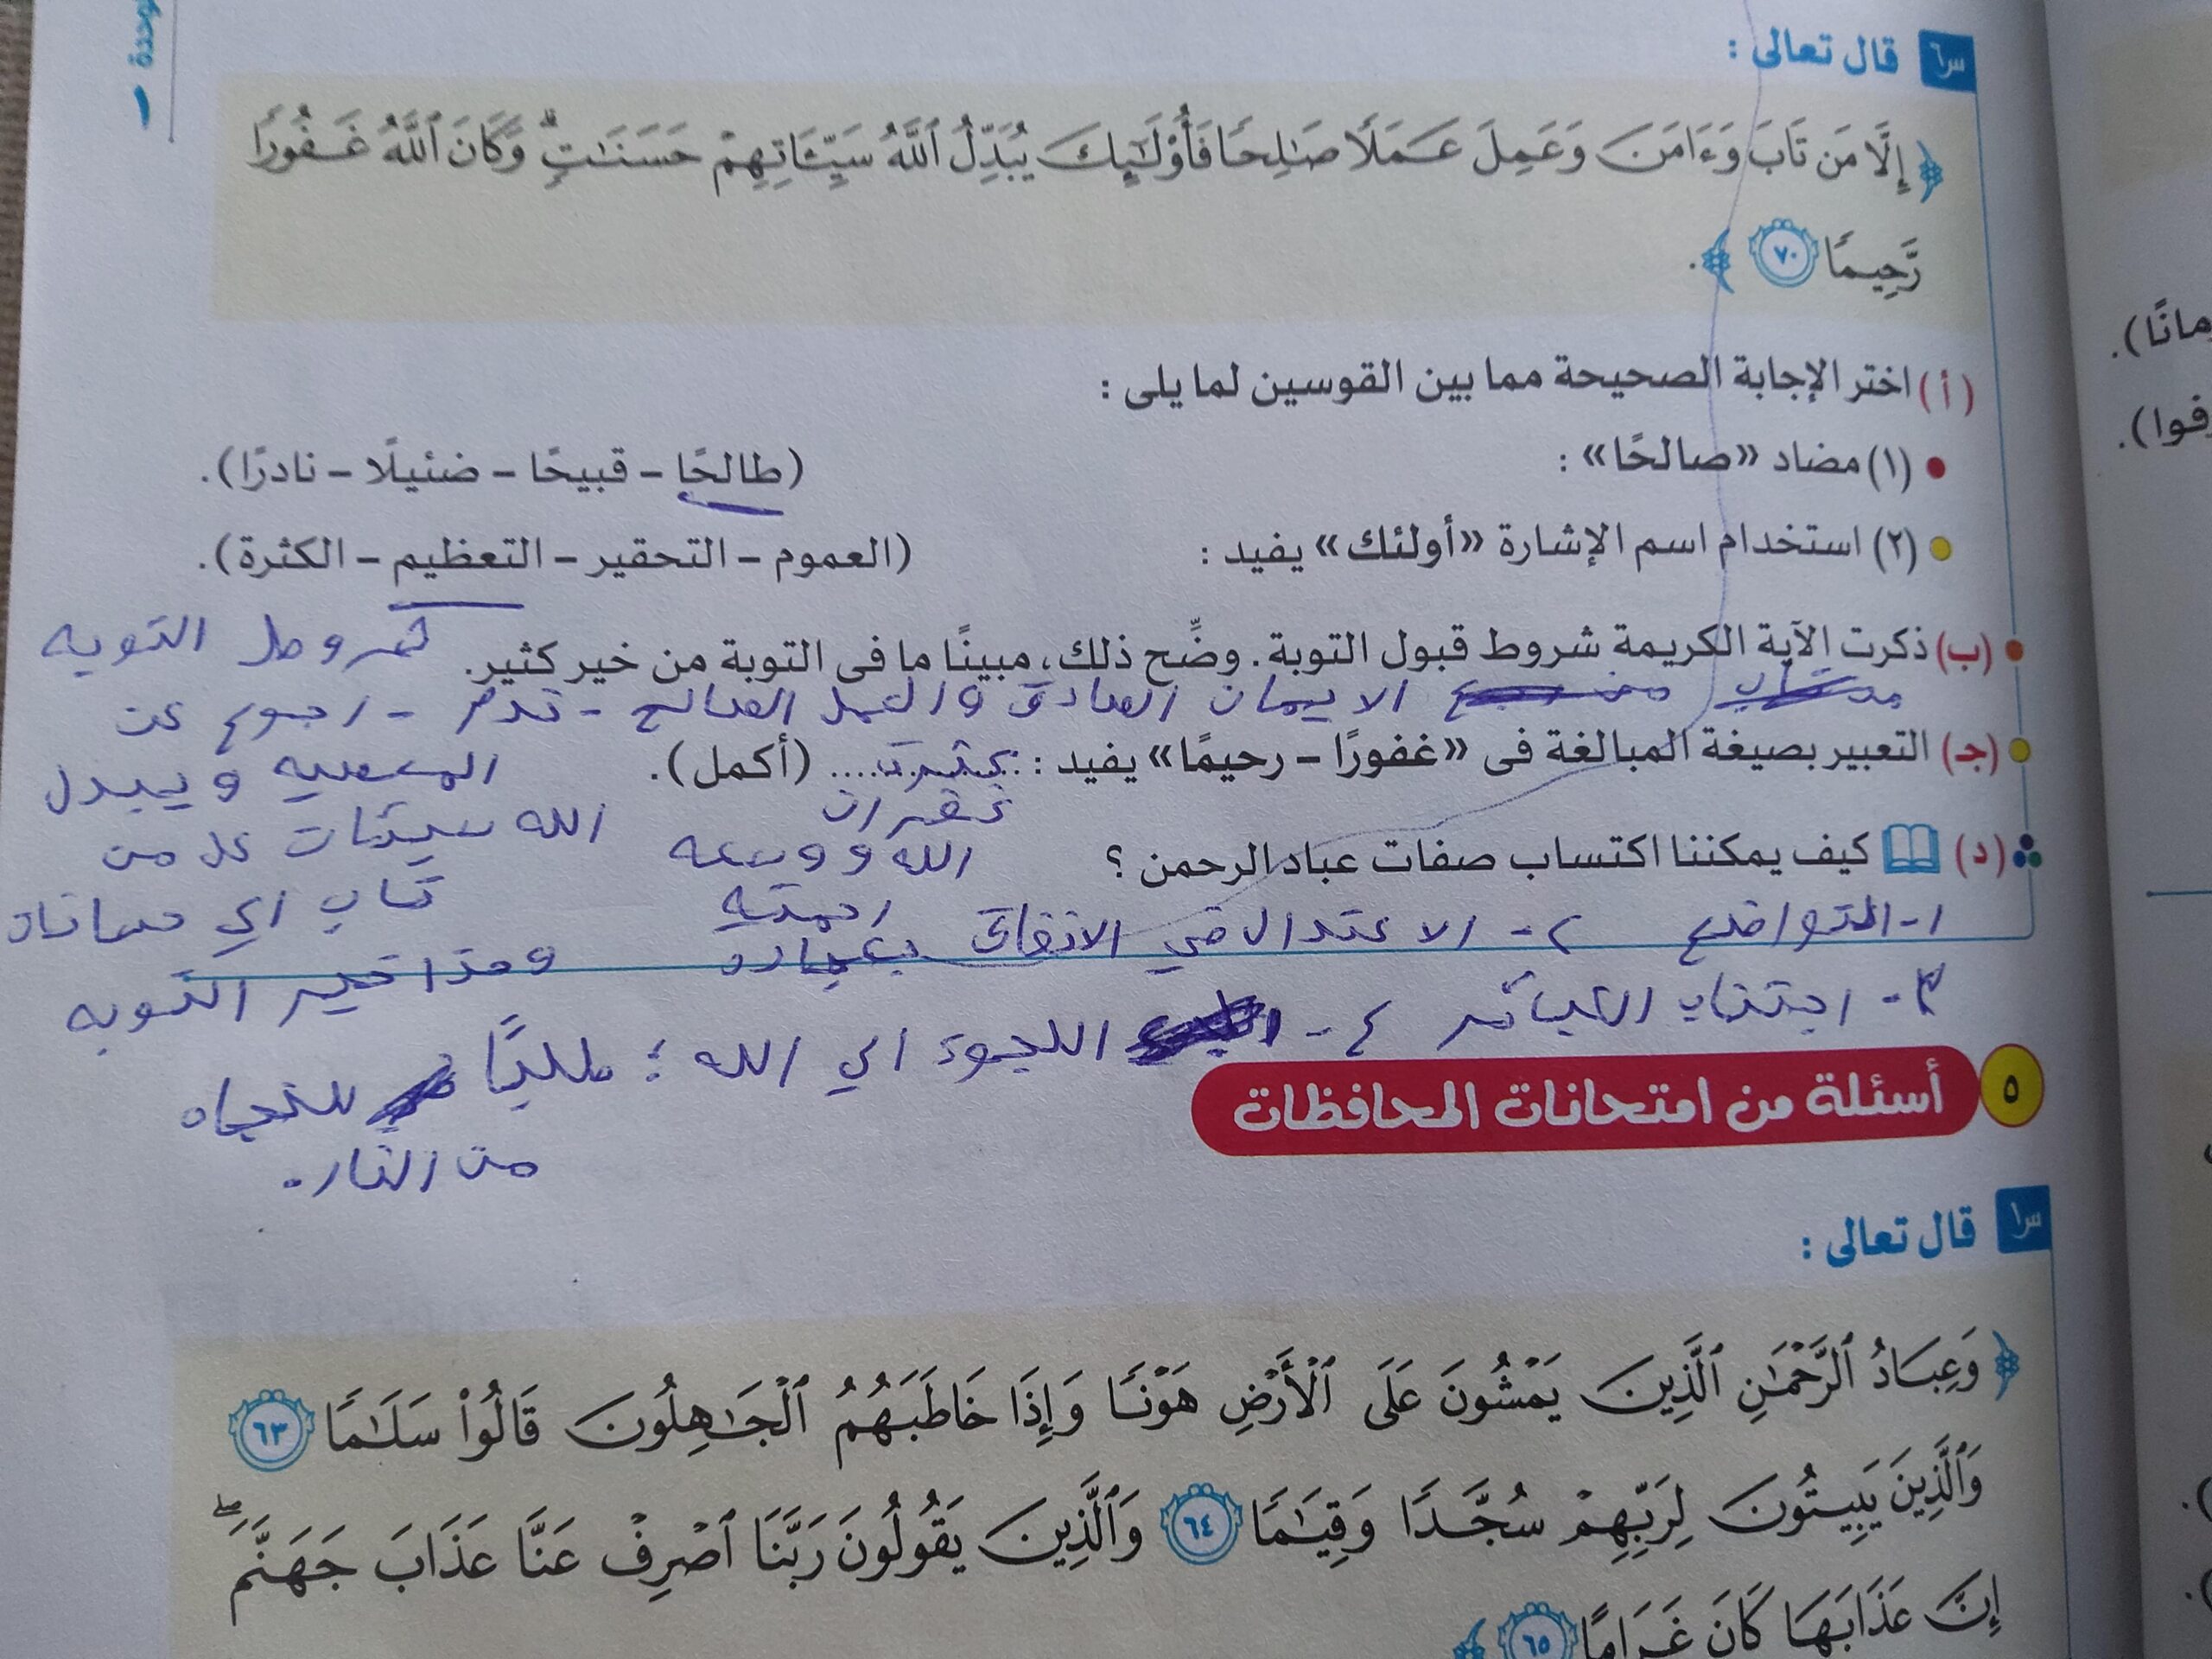 الوحدة ١
س٦ قال تعالى :
﴿ إِلَّا مَن تَابَ وَءَامَنَ وَعَمِلَ عَمَلًا صَٰلِحًا فَأُو۟لَٰٓئِكَ يُبَدِّلُ ٱللَّهُ سَيِّـَٔاتِهِمْ حَسَنَٰتٍ ۗ وَكَانَ ٱللَّهُ غَفُورًا
رَّحِيمًا ٧٠ ﴾.
(أ) اختر الإجابة الصحيحة مما بين القوسين لما يلى :
(١) مضاد «صالحًا» : (طالحًا – قبيحًا – ضئيلًا – نادرًا).
(٢) استخدام اسم الإشارة «أولئك» يفيد : (العموم – التحقير – التعظيم – الكثرة).
(ب) ذكرت الآية الكريمة شروط قبول التوبة. وضِّح ذلك، مبينًا ما فى التوبة من خير كثير.
شروط التوبه
الايمان الصادق والعمل الصالح - ندم - رجوع عن
المعصيه ويبدل
الله سيئات كل من
تاب الي حسانات
وهذا خير التوبه
(جـ) التعبير بصيغة المبالغة فى «غفورًا – رحيمًا» يفيد : .......... (أكمل).
غفران
الله ووسعه
رحمته
(د) كيف يمكننا اكتساب صفات عباد الرحمن ؟
١- التواضع ٢- الاعتدال في الانفاق
٣- اجتناب الكبائر ٤- اللجوء الي الله ؛ طلبًا للنجاه
من النار.
٥ أسئلة من امتحانات المحافظات
س١ قال تعالى :
﴿ وَعِبَادُ ٱلرَّحْمَٰنِ ٱلَّذِينَ يَمْشُونَ عَلَى ٱلْأَرْضِ هَوْنًا وَإِذَا خَاطَبَهُمُ ٱلْجَٰهِلُونَ قَالُوا۟ سَلَٰمًا ٦٣
وَٱلَّذِينَ يَبِيتُونَ لِرَبِّهِمْ سُجَّدًا وَقِيَٰمًا ٦٤ وَٱلَّذِينَ يَقُولُونَ رَبَّنَا ٱصْرِفْ عَنَّا عَذَابَ جَهَنَّمَ ۖ
إِنَّ عَذَابَهَا كَانَ غَرَامًا ٦٥ ﴾
مانًا).
فوا).